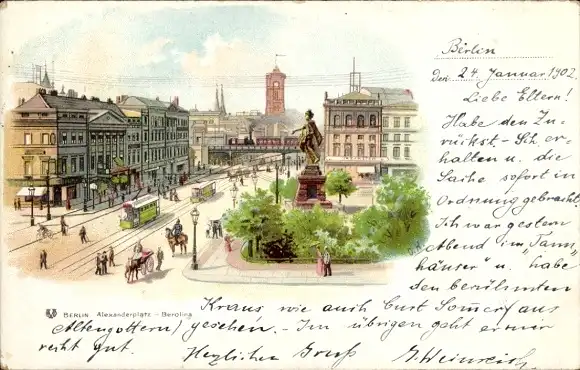 Berlin
Den 24. Januar 1902
Liebe Eltern!
Habe den Zu-
rückst.- Sch. er-
halten u. die
Sache sofort in
Ordnung gebracht.
Ich war gestern
Abend im "Tann-
häuser" u. habe
den berühmten
BERLIN Alexanderplatz - Berolina
Kraus wie auch Curt Somer( aus
Altengottern) gesehen. - Im übrigen geht es mir
recht gut. Herzlichen Gruß
Heinrich